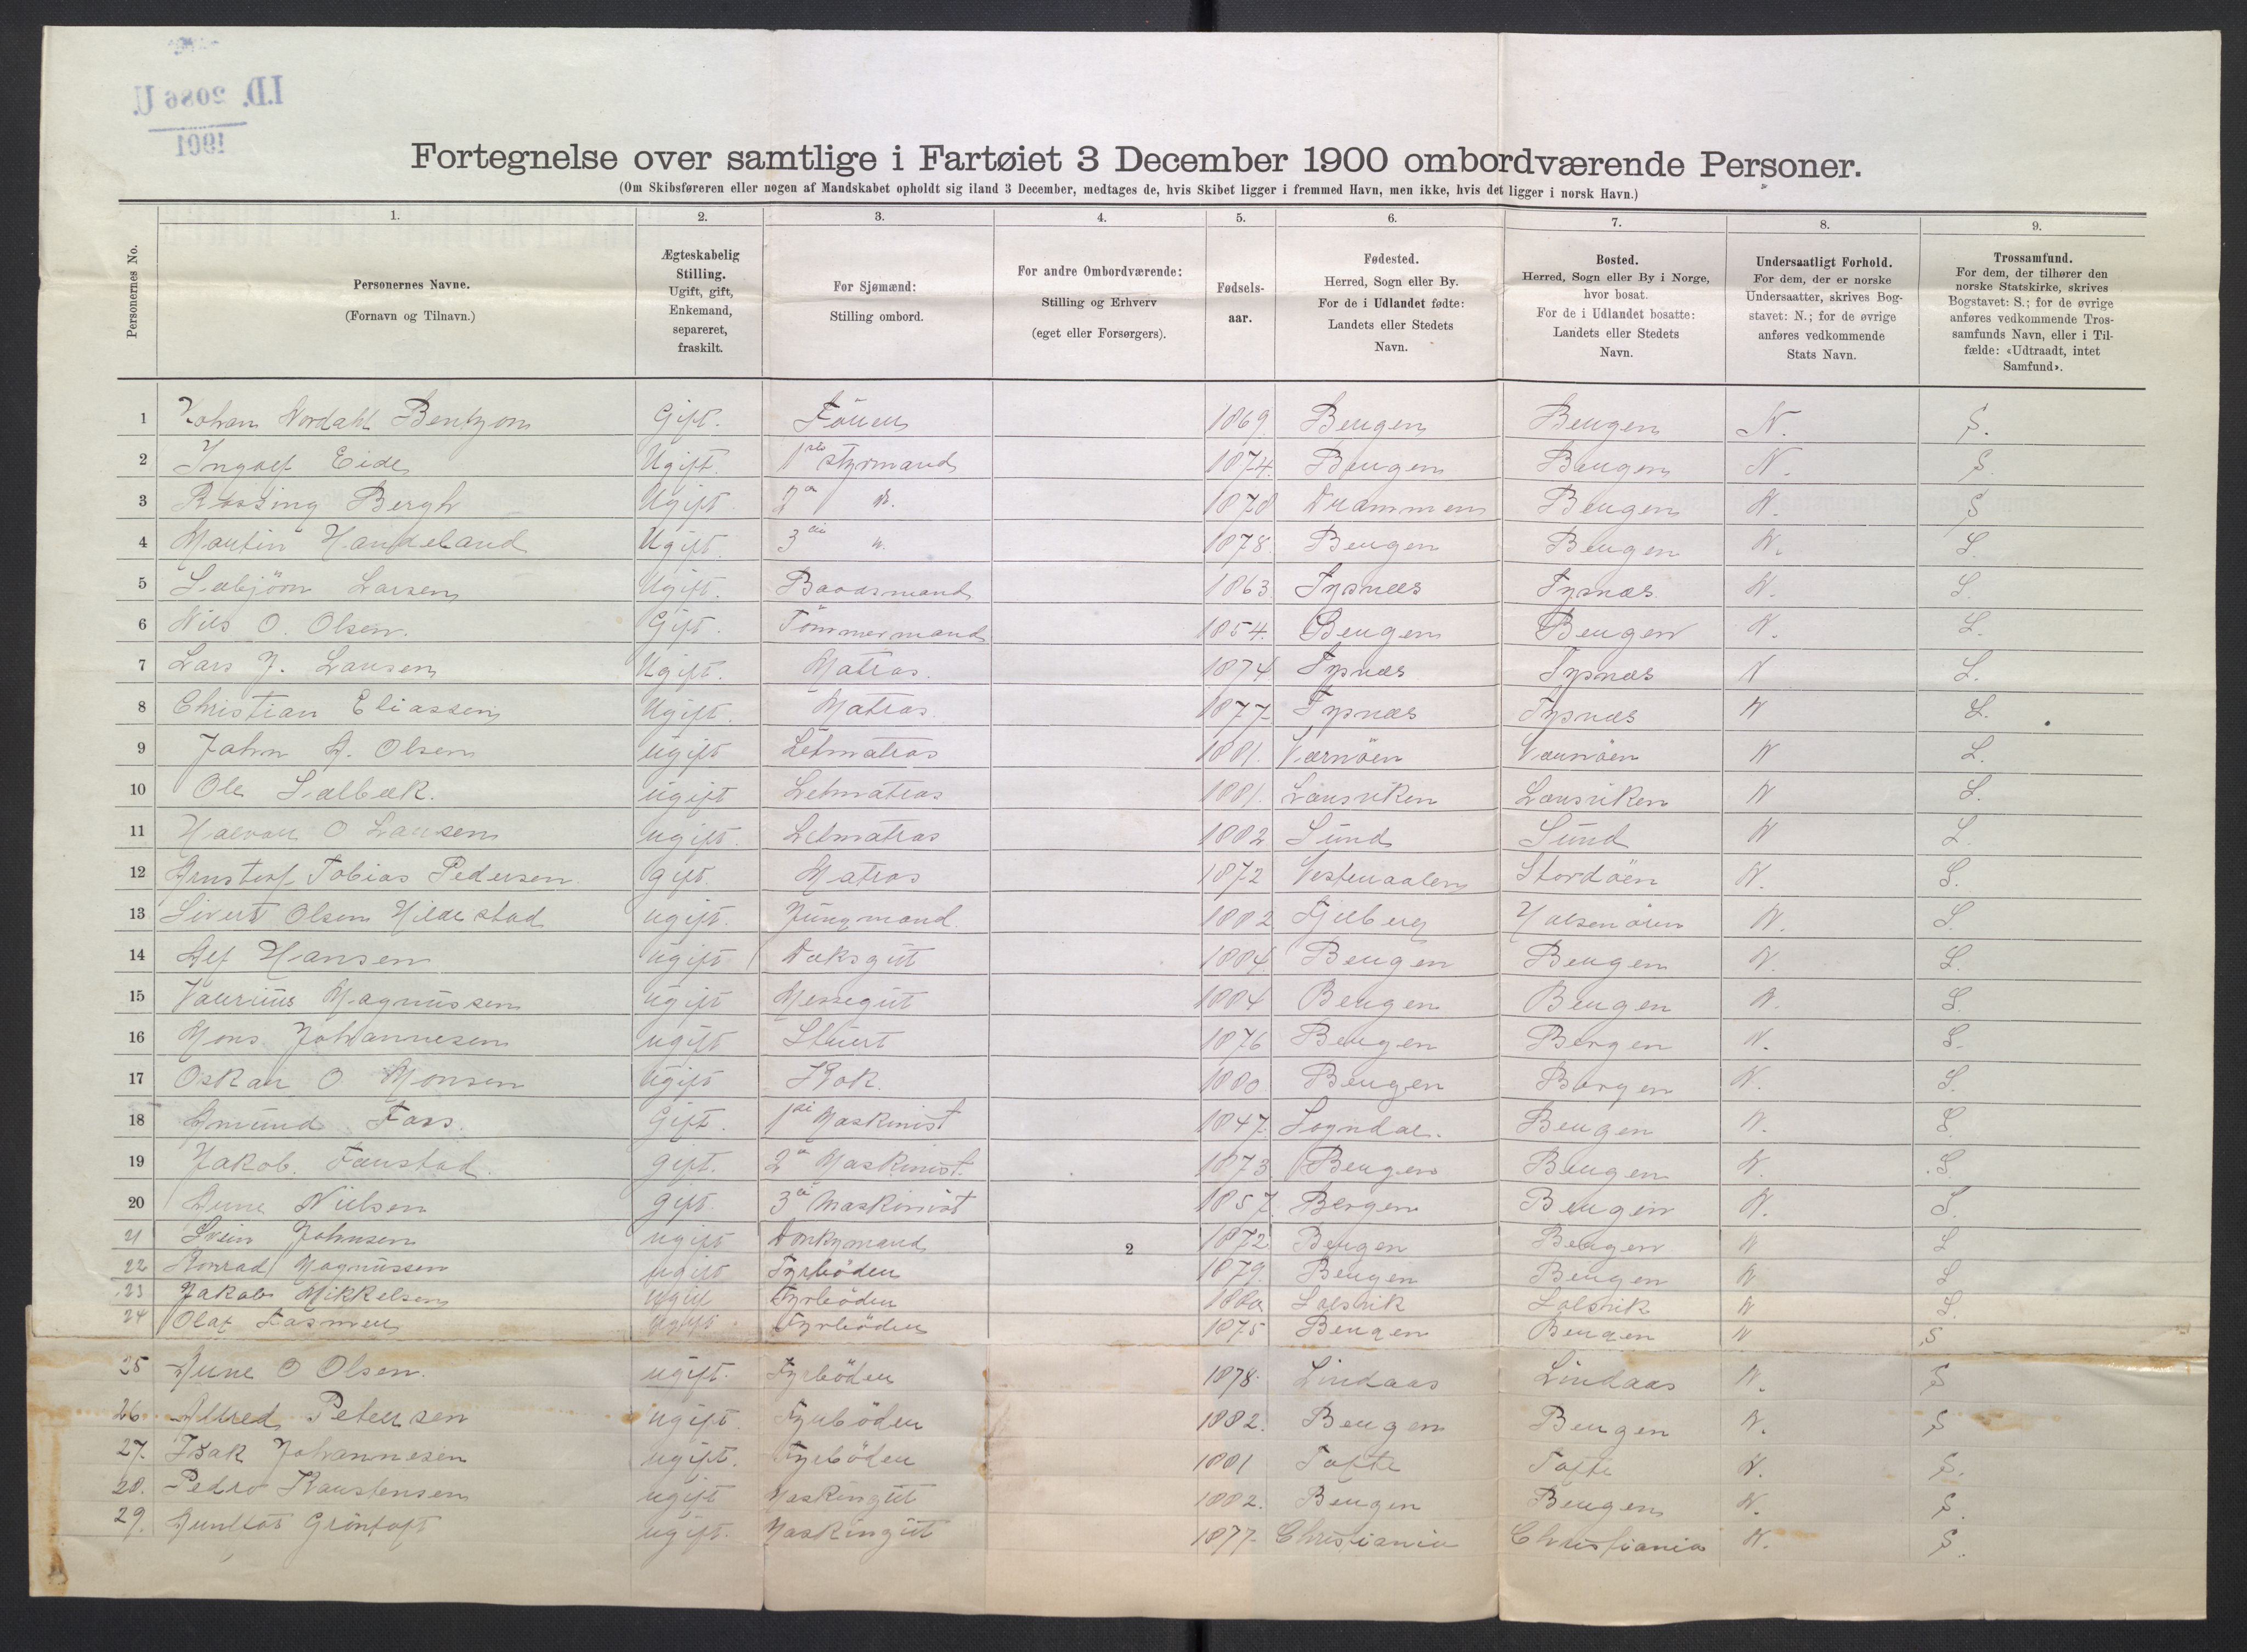 I.D. 2086 U.
1901
Fortegnelse over samtlige i Fartøiet 3 December 1900 ombordværende Personer.
(Om Skibsføreren eller nogen af Mandskabet opholdt sig iland 3 December, medtages de, hvis Skibet ligger i fremmed Havn, men ikke, hvis det ligger i norsk Havn.)
Personernes No.
1. 2. 3. 4. 5. 6. 7. 8. 9.
Personernes Navne.
(Fornavn og Tilnavn.)
Ægteskabelig
Stilling.
Ugift, gift,
Enkemand,
separeret,
fraskilt.
For Sjømænd:
Stilling ombord.
For andre Ombordværende:
Stilling og Erhverv
(eget eller Forsørgers).
Fødsels-
aar.
Fødested.
Herred, Sogn eller By.
For de i Udlandet fødte:
Landets eller Stedets
Navn.
Bosted.
Herred, Sogn eller By i Norge,
hvor bosat.
For de i Udlandet bosatte:
Landets eller Stedets
Navn.
Undersaatligt Forhold.
For dem, der er norske
Undersaatter, skrives Bog-
stavet: N.; for de øvrige
anføres vedkommende
Stats Navn.
Trossamfund.
For dem, der tilhører den
norske Statskirke, skrives
Bogstavet: S.; for de øvrige
anføres vedkommende Tros-
samfunds Navn, eller i Til-
fælde: «Udtraadt, intet
Samfund».
1 Johan Nordahl Bentzon Gift. Förer 1869 Bergen Bergen N. S.
2 Ingolf Eide Ugift. 1ste styrmand 1874. Bergen Bergen N. S.
3 Rossing Bergh Ugift 2n d. 1878 Drammen Bergen N. S
4 Martin Handeland Ugift. 3die 1878. Bergen Bergen N. S.
5 Sæbjörn Larsen Ugift. Baadsmand 1863 Tysnæs Tysnæs N. S.
6 Nils O. Olsen. Gift. Tömmermand 1854. Bergen Bergen N. S.
7 Lars J. Larsen Ugift. Matros. 1874 Tysnæs Tysnæs N S.
8 Christian Eliassen Ugift. Matros. 1877 Tysnæs Tysnæs N S.
9 John A. Olsen ugift Letmatros 1881. Værnöen Værnöen N S.
10 Ole Sælbæk. ugift Letmatros 1881. Lansviken Lansviken N S.
11 Halvor O Larsen ugift. Letmatros 1882 Sund Sund N S.
12 Tobias Pedersen. gift. Matros 1872 Vesteraalen Stordöen N. S.
13 Sivert Olsen Hildestad ugift. Jungmand. 1882 Fjelberg Halsenören N. S.
14 Alf Hansen ugift Daksgut 1884 Bergen Bergen N. S.
15 Magnussen ugift Messegut 1884 Bergen Bergen N. S.
16 Mons Johannesen ugift Stuert 1876 Bergen Bergen N. S.
17 Oskar O Monsen ugift Kok. 1880 Bergen Bergen N. S.
18 Amund Fars. Gift. 1ste Maskinist 1847. Sogndal. Bergen N. S.
19 Jakob. Farstad. gift. 2n Maskinist. 1873 Bergen Bergen N. S.
20 Arne Nielsen gift. 3die Maskinist 1857 Bergen Bergen N. S.
21 Svein Johnsen ugift Donkymand 2 1872 Bergen Bergen N S
22 Konrad Magnussen ugift Fyrböder 1879. Bergen Bergen N S
23 Jakob Mikkelsen ugift Fyrböder 1880 Salsvik Salsvik N S.
24 Olaf Kasmer ugift Fyrböder 1875 Bergen Bergen N S
25 Arne O Olsen. ugift. Fyrböder 1878. Lindaas Lindaas N. S
26. Alfred Petersen ugift Fyrböder 1882. Bergen Bergen N. S
27. Isak Johannesen ugift. Fyrböder 1881 Tofte Tofte N. S.
28. Pedro Karstensen ugift Maskingut 1882. Bergen Bergen N. S.
29. Gröntoft ugift. Maskingut 1877 Christiania Christiania N. S.